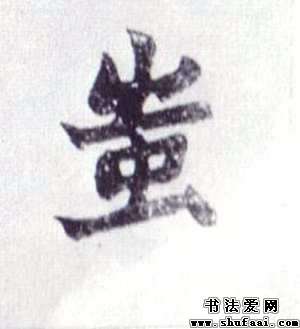 蚩
书法爱网
www.shufaai.com